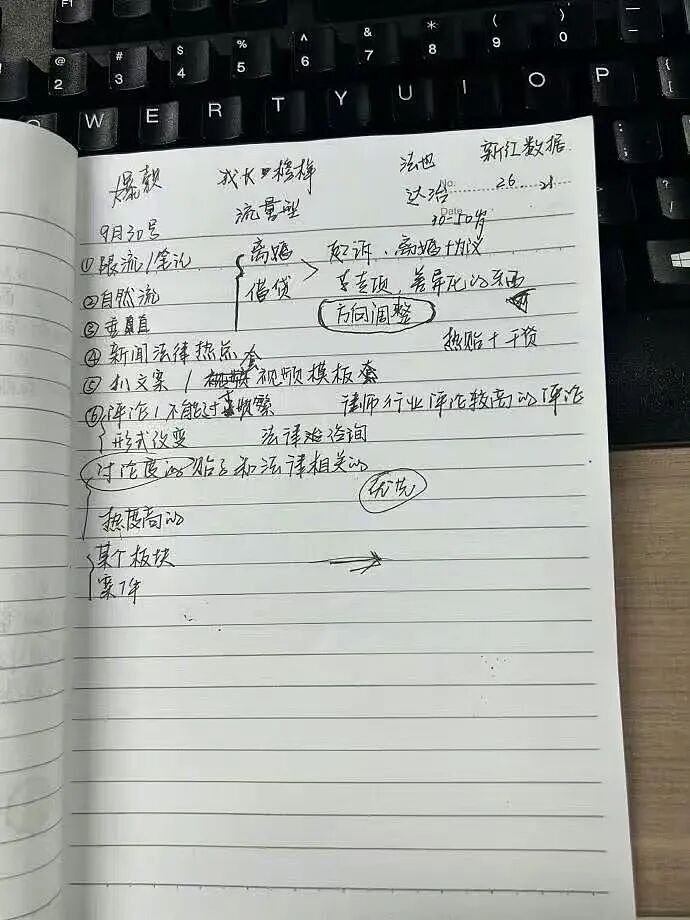 F1 @ 2 # 3 $ 4 % 5 ^ 6 & 7 * 8 ( 9 ) 0
Q W E R T Y U I O P
爆款 找 榜样 法 新红数据
No. 26 21
流量型 Date 30-50岁
9月30号
①限流/笔记 离婚 起诉、离婚协议
②自然流 借贷 专项、差异化的东西
③垂直 方向调整
④新闻法律热点 热贴+干货
⑤扒文案/视频模板套
⑥评论/不能过频繁 律师行业评论较高的评论
形式改变 法律咨询
讨论度的贴子和法律相关的
优先
热度高的
某个板块
案件